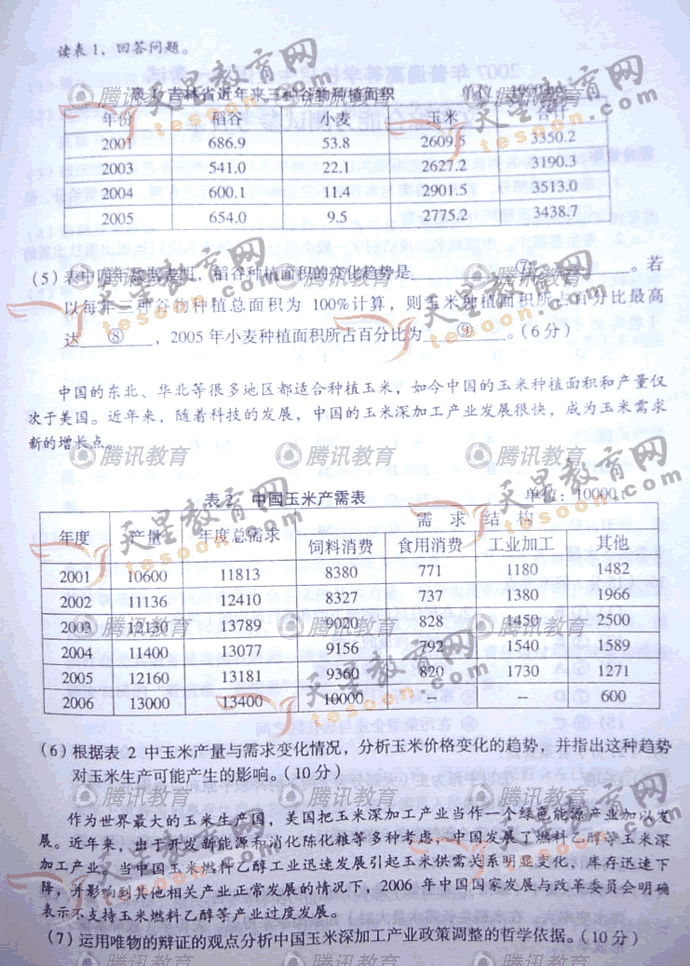 读表1，回答问题。
表1 吉林省近年来三种谷物种植面积 单位：
年份 稻谷 小麦 玉米 合计
2001 686.9 53.8 2609.5 3350.2
2003 541.0 22.1 2627.2 3190.3
2004 600.1 11.4 2901.5 3513.0
2005 654.0 9.5 2775.2 3438.7
(5) 表中四年数据表明，稻谷种植面积的变化趋势是 ⑦ 。若
以每年三种谷物种植总面积为 100%计算，则玉米种植面积所占百分比最高
达 ⑧ ，2005 年小麦种植面积所占百分比为 ⑨ 。(6 分)
中国的东北、华北等很多地区都适合种植玉米，如今中国的玉米种植面积和产量仅
次于美国。近年来，随着科技的发展，中国的玉米深加工产业发展很快，成为玉米需求
新的增长点。
表 2 中国玉米产需表 单位：10000
年度 产量 年度总需求 需求结构
饲料消费 食用消费 工业加工 其他
2001 10600 11813 8380 771 1180 1482
2002 11136 12410 8327 737 1380 1966
2003 12130 13789 9020 828 1450 2500
2004 11400 13077 9156 792 1540 1589
2005 12160 13181 9360 820 1730 1271
2006 13000 13400 10000 -- -- 600
(6) 根据表 2 中玉米产量与需求变化情况，分析玉米价格变化的趋势，并指出这种趋势
对玉米生产可能产生的影响。(10 分)
作为世界最大的玉米生产国，美国把玉米深加工产业当作一个绿色能源产业加以发
展。近年来，出于开发新能源和消化陈化粮等多种考虑，中国发展了燃料乙醇等玉米深
加工产业。当中国玉米燃料乙醇工业迅速发展引起玉米供需关系明显变化、库存迅速下
降，并影响到其他相关产业正常发展的情况下，2006 年中国国家发展与改革委员会明确
表示不支持玉米燃料乙醇等产业过度发展。
(7) 运用唯物的辩证的观点分析中国玉米深加工产业政策调整的哲学依据。(10 分)
天星教育网
tesoon.com
腾讯教育